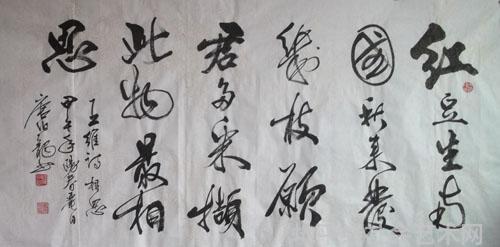 红豆生南
国秋来發
幾枝願
君多采撷
此物最相
思
王维诗相思
甲午年